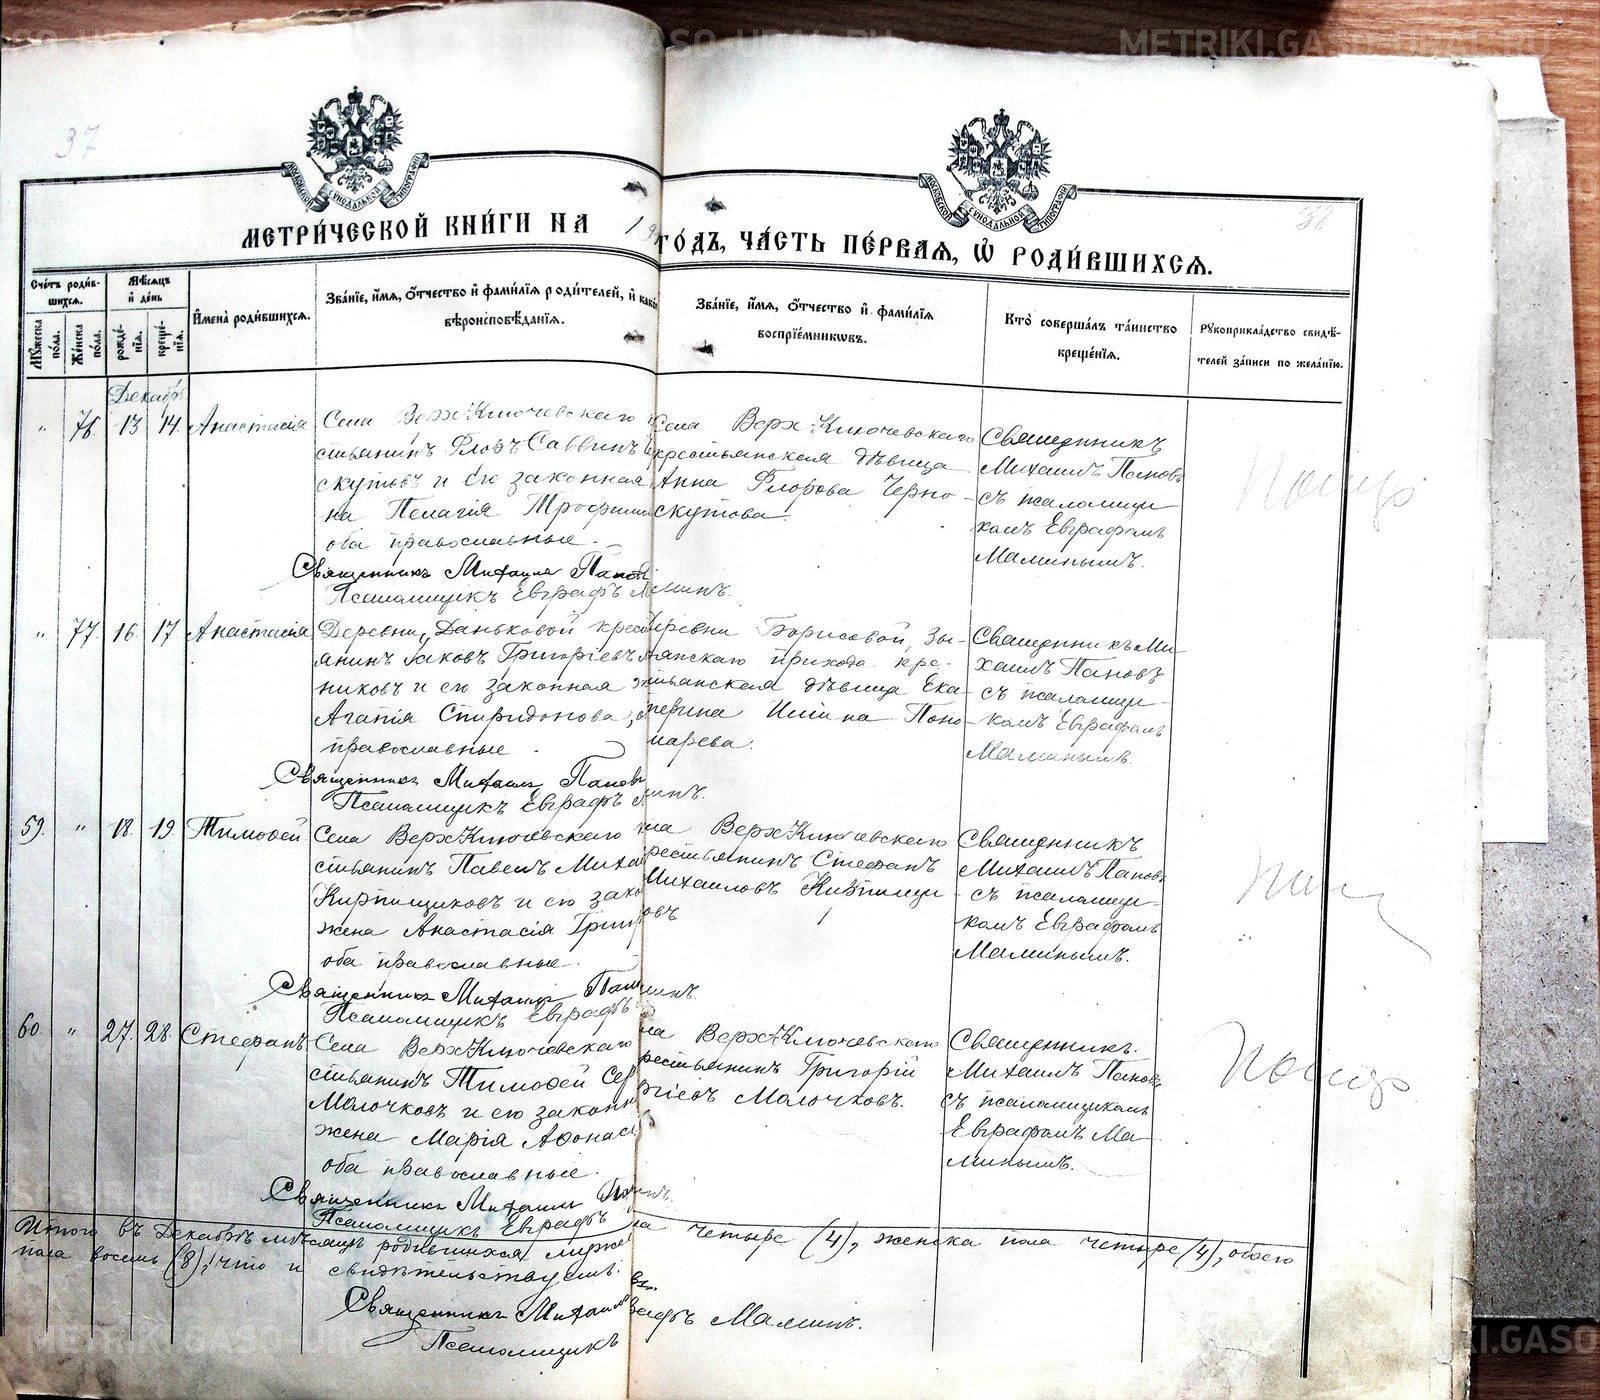 METRIKI.GASO-URAL.RU
37
36
МОСКОВСКОЙ СѴНОДАЛЬНОЙ ТИПОГРАФІИ
МОСКОВСКОЙ СѴНОДАЛЬНОЙ ТИПОГРАФІИ
МЕТРИ́ЧЕСКОЙ КНИ́ГИ НА 19
ГО́ДЪ, ЧА́СТЬ ПЕ́РВАЯ, Ѽ РОДИ́ВШИХСЯ.
Сче́тъ роди́в-
шихся.
Мѹжеска по́ла.
Же́нска по́ла.
Мѣ́сяцъ
и҆ де́нь
рожде́-
нїѧ.
креще́-
нїѧ.
И҆мена̀ роди́вшихся.
Зва́нїе, и҆́мѧ, ѻ҆́тчество и҆ фами́лїѧ роди́телей, и҆ како́
вѣроисповѣ́данїѧ.
Зва́нїе, и҆́мѧ, ѻ҆́тчество и҆ фами́лїѧ
воспрїе́мникѡвъ.
Кто̀ соверша́лъ та́инство
креще́нїѧ.
Рѹкоприкла́дство свидѣ́-
телей за́писи по жела́нїю.
Декабрь
" 76. 13 14. Анастасія
Села Верх-Ключевскаго
стьянинъ Флоръ Саввинъ
скутовъ и его законная
на Пелагія Трофим
оба православные.
Священникъ Михаилъ Панов
Псаломщикъ Евграфъ Маминъ.
Села Верх-Ключевскаго
крестьянская дѣвица
Анна Флорова Черно-
скутова.
Священникъ
Михаилъ Пановъ
съ псаломщи-
комъ Евграфомъ
Маминымъ.
" 77. 16. 17 Анастасія
Деревни Даньковой крест
янинъ Іаковъ Григоріевъ
никовъ и его законная
Агапія Спиридонова,
православные.
Священникъ Михаилъ Пановъ
Псаломщикъ Евграфъ Маминъ.
Деревни Борисовой, Зы-
рянскаго прихода кре-
стьянская дѣвица Ека-
терина Ильина Поно-
марева.
Священникъ Ми-
хаилъ Пановъ
съ псаломщи-
комъ Евграфомъ
Маминымъ.
59. " 18. 19 Тимофей
Села Верх-Ключевскаго
стьянинъ Павелъ Миха
Кирпищиковъ и его зако
жена Анастасія Григ
оба православные.
Священникъ Михаилъ Пан
Псаломщикъ Евграфъ Маминъ.
Села Верх-Ключевскаго
крестьянинъ Стефанъ
Михаиловъ Кирпищи-
ковъ
Священникъ
Михаилъ Пановъ
съ псаломщи-
комъ Евграфомъ
Маминымъ.
60 " 27. 28. Стефанъ
Села Верх-Ключевскаго
стьянинъ Тимофей Сер
Молочковъ и его законн
жена Марія Афонас
оба православные.
Священникъ Михаилъ
Псаломщикъ Евграфъ
Села Верх-Ключевскаго
крестьянинъ Григорій
Молочковъ.
Священникъ.
Михаилъ Пановъ
съ псаломщикомъ
Евграфомъ Ма-
минымъ.
Итого въ Декабрѣ мѣсяцѣ родившихся муже
ска четыре (4), женска пола четыре (4), обоего
пола восемь (8), что и свидѣтельствуемъ:
Священникъ Михаилъ
Псаломщикъ Евграфъ Маминъ.
METRIKI.GASO-URAL.RU